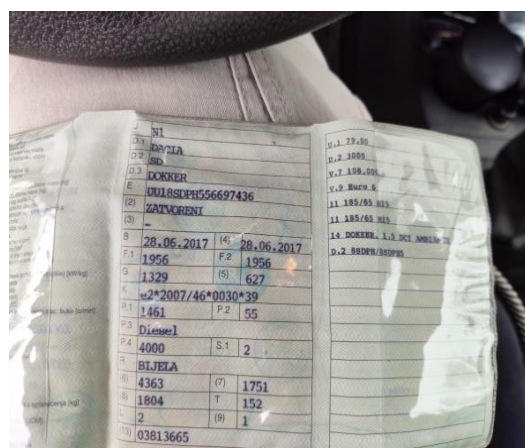 J N1
D.1 DACIA
D.2 SD
D.3 DOKKER
E UU18SDPH556697436
(2) ZATVORENI
(3) -
B 28.06.2017 (4) 28.06.2017
F.1 1956 F.2 1956
G 1329 (5) 627
K e2*2007/46*0030*39
P.1 1461 P.2 55
P.3 Diesel
P.4 4000 S.1 2
R BIJELA
(6) 4363 (7) 1751
(8) 1804 T 152
L 2 (9) 1
(13) 03813665
U.1 79.00
U.2 3000
V.7 108.00
V.9 Euro 6
11 185/65 R15
11 185/65 R15
14 DOKKER, 1.5 DCI
D.2 8SDPH/8SDPH5